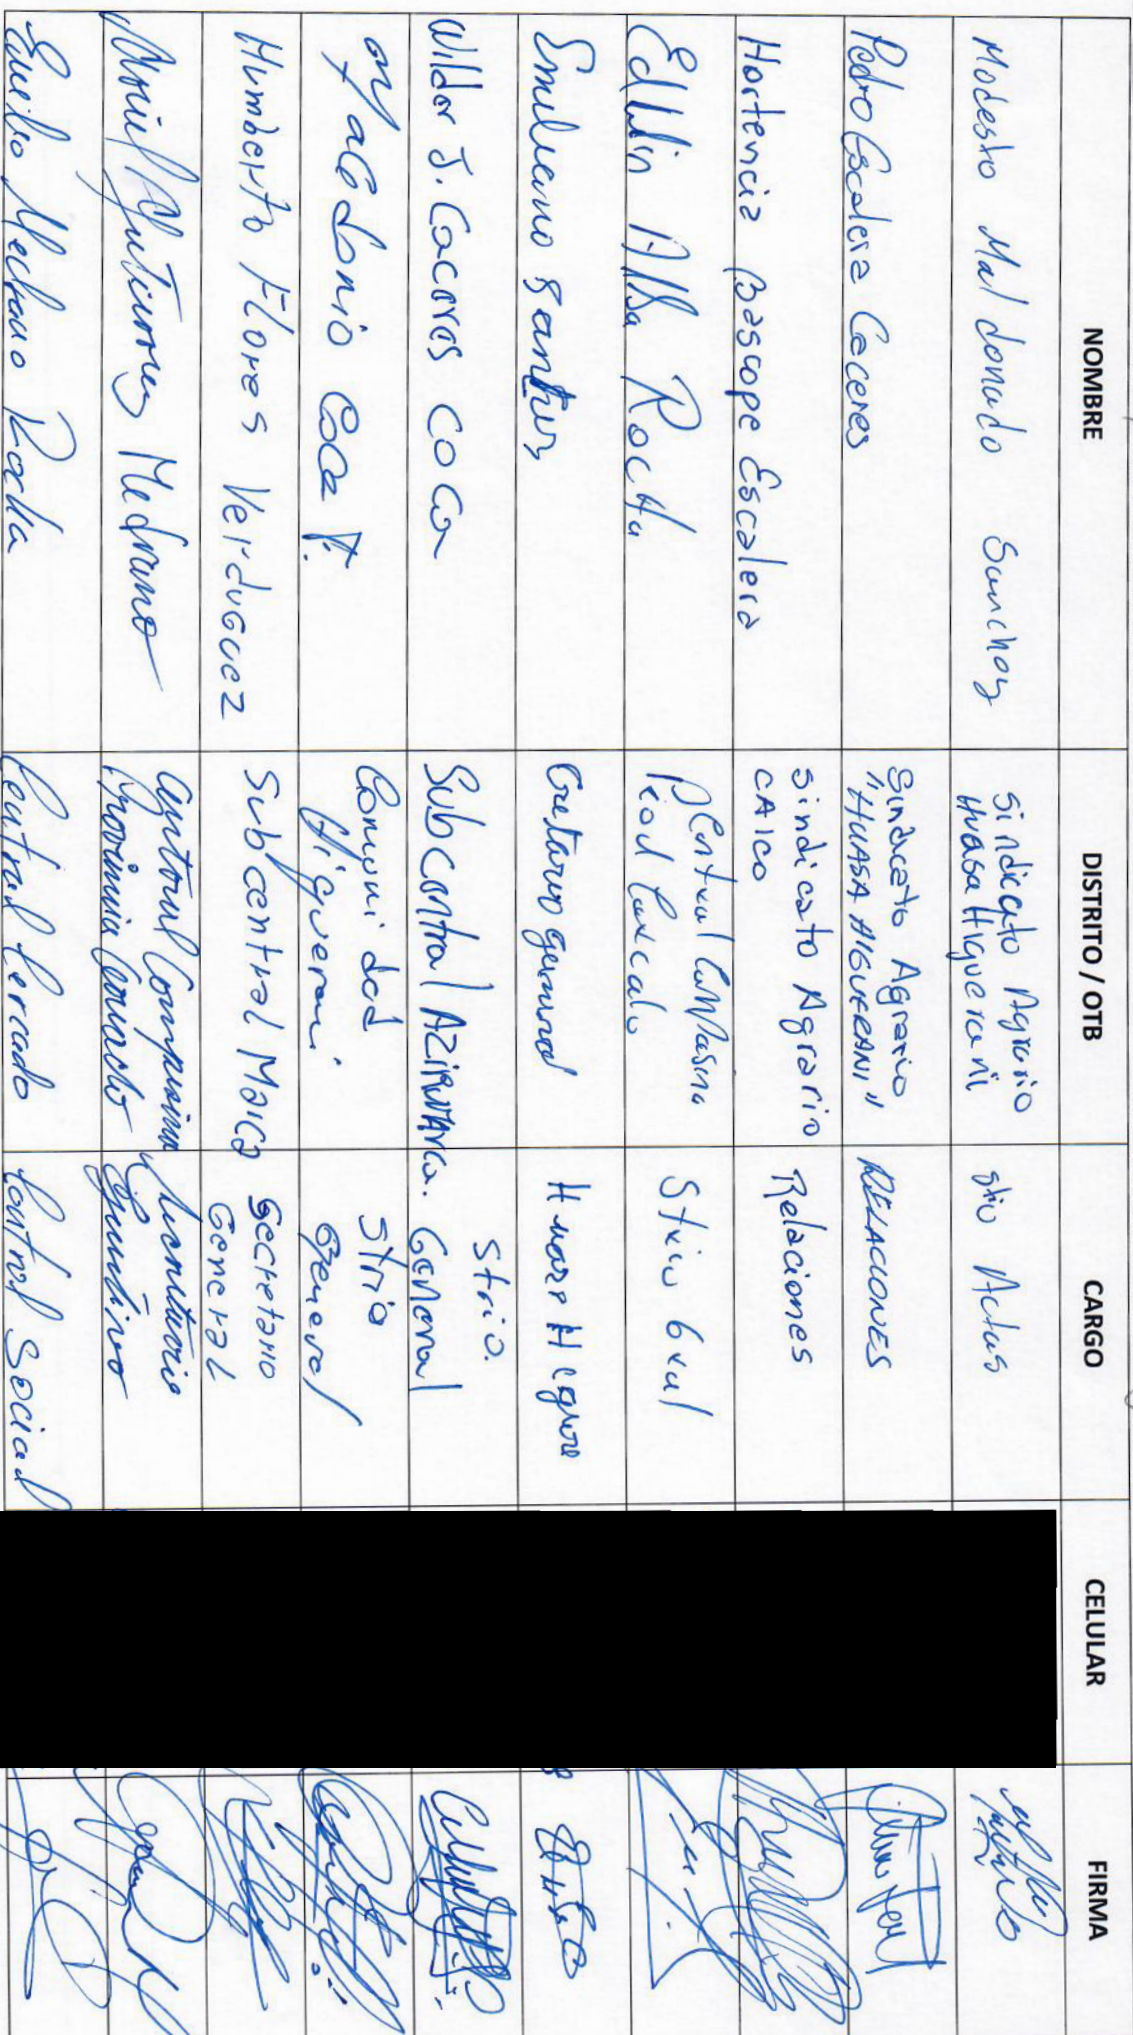 NOMBRE DISTRITO / OTB CARGO CELULAR FIRMA
Modesto Maldonado Sanchez
Sindicato Agrario
Huasa Higuerani
Strio Actas
Pedro Escalera Caceres
Sindicato Agrario
"HUASA HIGUERANI"
RELACIONES
Hortencia Bascope Escalera
Sindicato Agrario
CAICO
Relaciones
Edwin Alba Rocha
Central Campesina
Strio Gral
Emiliano Santos
General
Wilder J. Caceres Coca
Subcentral AZIRUMARCA.
Strio.
General
Coca
Comunidad
Higuerani
Strio
General
Humberto Flores Verduguez
Subcentral Maica
Secretario
General
Gutierrez Medrano
Central Campesina
Provincia Cercado
Secretario
Ejecutivo
Rocha
Central Cercado
Control Social